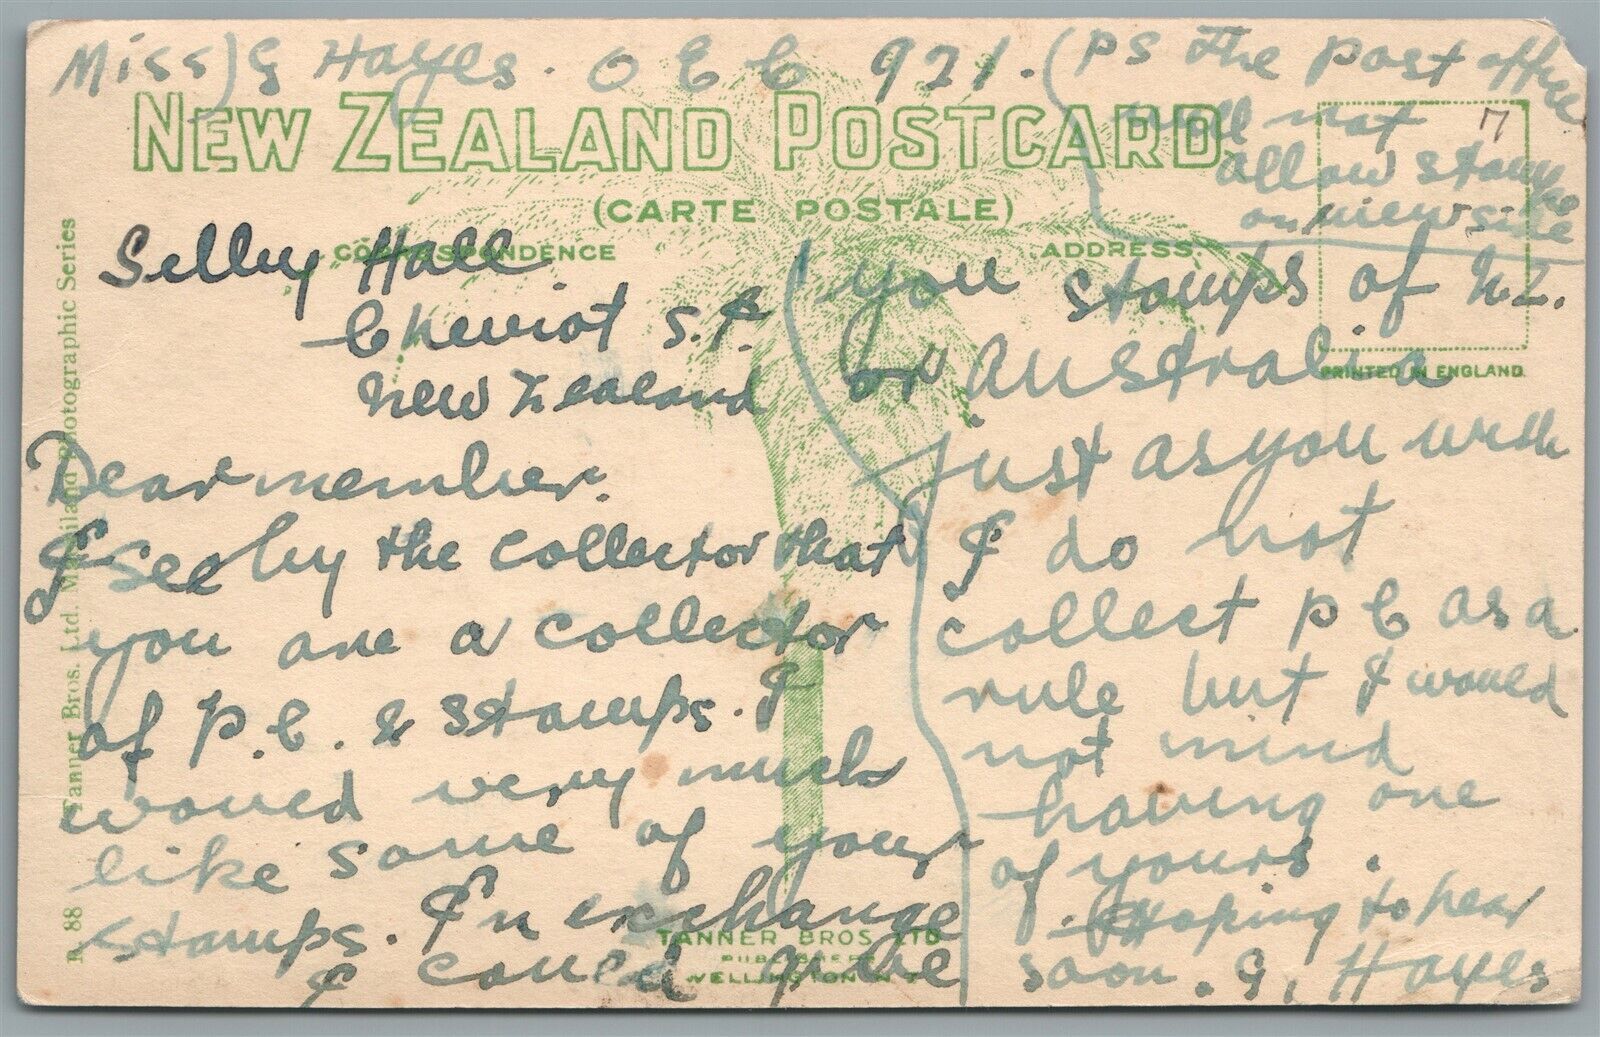 Miss) G Hayes. O E C 921.
(PS The post office
will not
allow stamps
on view side
NEW ZEALAND POSTCARD
(CARTE POSTALE)
CORRESPONDENCE
ADDRESS.
Selby Hall
Cheviot S.I.
New Zealand
Dear member.
I see by the collector that
you are a collector
of P.C. & stamps. I
would very much
like some of your
stamps. In exchange
I could give
you stamps of N.Z.
or Australia
just as you wish
I do not
collect P C as a
rule but I would
not mind
having one
of yours.
Hoping to hear
soon. G, Hayes
PRINTED IN ENGLAND
TANNER BROS LTD
PUBLISHERS
WELLINGTON N.Z.
R. 88 Tanner Bros. Ltd. Maoriland Photographic Series